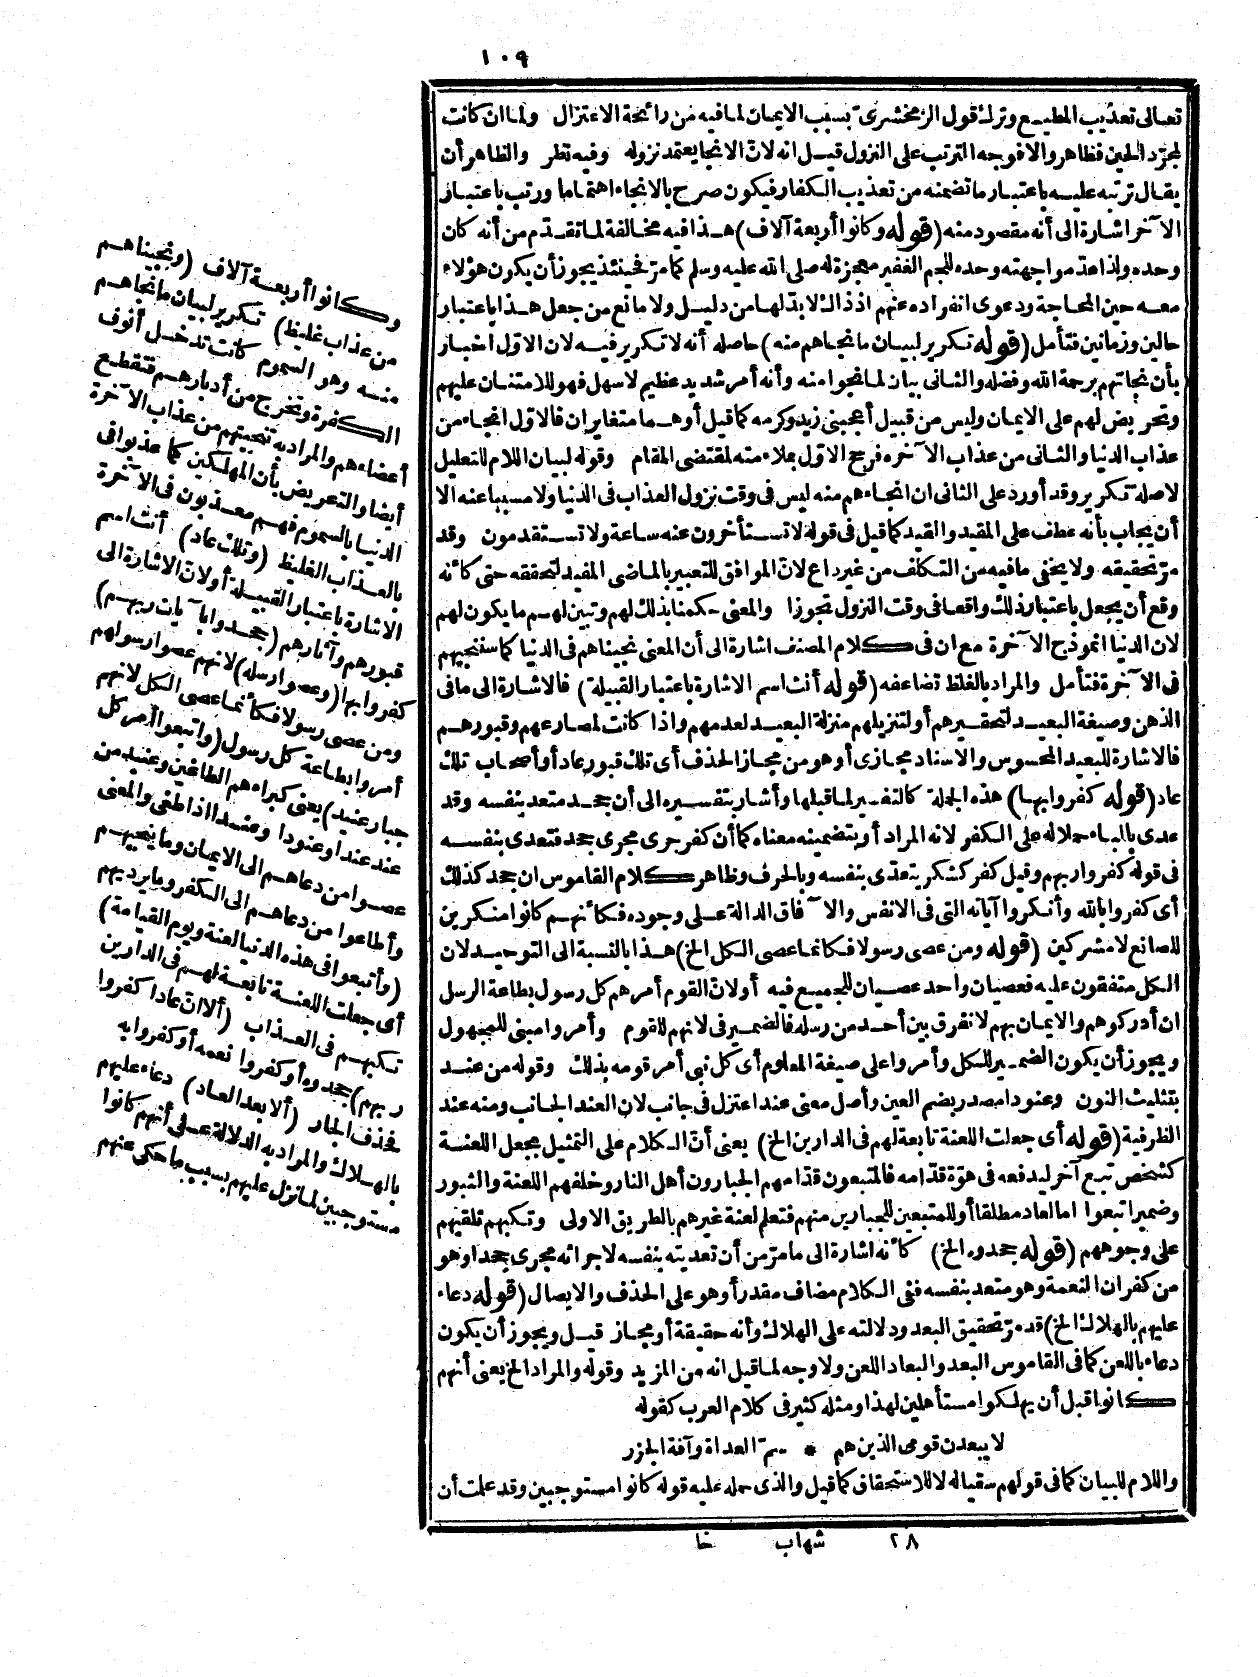 ١٠٩
تعالى تعذيب المطيع وترك قول الزمخشرى بسبب الايمان لما فيه من رائحة الاعتزال ولما ان كانت
لمجرّد الحين فظاهر والا فوجه الترتب على النزول قيل انه لانّ الانجا يعتمد نزوله وفيه نظر والظاهر أن
يقال ترتبه عليه باعتبار ما تضمنه من تعذيب الكفار فيكون صرح بالانجاء اهتماما ورتب باعتبار
الآخر اشارة الى أنه مقصود منه (قوله وكانوا أربعة آلاف) هذا فيه مخالفة لما تقدّم من أنه كان
وحده ولذا عدّ مواجهته وحده للجم الغفير معجزة له صلى الله عليه وسلم كما مرّ فحينئذ يجوز أن يكون هؤلاء
معه حين المحاجة ودعوى انفراده عنهم اذ ذاك لا بدّ لها من دليل ولا مانع من جعل هذا باعتبار
حالين وزمانين فتأمل (قوله تكرير لبيان ما نجاهم منه) حاصله أنه لا تكرير فيه لان الاوّل اخبار
بأن نجاتهم برحمة الله وفضله والثانى بيان لما نجوا منه وأنه أمر شديد عظيم لا سهل فهو للامتنان عليهم
وتحريض لهم على الايمان وليس من قبيل أعجبنى زيد وكرمه كما قيل أو هما متغايران فالاوّل انجاء من
عذاب الدنيا والثانى من عذاب الآخره فرجح الاوّل بملاءمته لمقتضى المقام وقوله لبيان اللام للتعليل
لا صلة تكرير وقد أورد على الثانى ان انجاءهم منه ليس فى وقت نزول العذاب فى الدنيا ولا مسببا عنه الا
أن يجاب بأنه عطف على المقيد والقيد كما قيل فى قوله لا تستأخرون عنه ساعة ولا تستقدمون وقد
مرّ تحقيقه ولا يخفى ما فيه من التكلف من غير داع لانّ الموافق للتعبير بالماضى المفيد لتحققه حتى كأنه
وقع أن يجعل باعتبار ذلك واقعا فى وقت النزول تجوزا والمعنى حكمنا بذلك لهم وتبين لهم ما يكون لهم
لان الدنيا انموذج الآخرة مع ان فى كلام المصنف اشارة الى أن المعنى نجيناهم فى الدنيا كما سننجيهم
فى الآخرة فتأمل والمراد بالغلظ تضاعفه (قوله أنث اسم الاشارة باعتبار القبيلة) فالاشارة الى ما فى
الذهن وصيغة البعيد لتحقيرهم أو لتنزيلهم منزلة البعيد لعدمهم واذا كانت لمصارعهم وقبورهم
فالاشارة للبعيد المحسوس والاسناد مجازى أو هو من مجاز الحذف أى تلك قبور عاد أو أصحاب تلك
عاد (قوله كفروا بها) هذه الجملة كالتفسير لما قبلها وأشار بتفسيره الى أن جحد متعد بنفسه وقد
عدى بالباء حملا له على الكفر لانه المراد أو بتضمينه معناه كما أن كفر جرى مجرى جحد فتعدى بنفسه
فى قوله كفروا ربهم وقيل كفر كشكر يتعدّى بنفسه وبالحرف وظاهر كلام القاموس ان جحد كذلك
أى كفروا بالله وأنكروا آياته التى فى الانفس والآفاق الدالة على وجوده فكأنهم كانوا منكرين
للصانع لا مشركين (قوله ومن عصى رسولا فكانما عصى الكل الخ) هذا بالنسبة الى التوحيد لان
الكل متفقون عليه فعصيان واحد عصيان للجميع فيه أو لانّ القوم أمرهم كل رسول بطاعة الرسل
ان أدركوهم والايمان بهم لا نفرق بين أحد من رسله فالضمير فى لانهم للقوم وأمروا مبنى للمجهول
ويجوز أن يكون الضمير للكل وأمروا على صيغة المعلوم أى كل نبى أمر قومه بذلك وقوله من عند
بتثليث النون وعنودا مصدر بضم العين وأصل معنى عند اعتزل فى جانب لان العند الجانب ومنه عند
الظرفية (قوله أى جعلت اللعنة تابعة لهم فى الدارين الخ) يعنى أنّ الكلام على التمثيل بجعل اللعنة
كشخص تبع آخر ليدفعه فى هوّة قدّامه فالمتبعون قدّامهم الجبارون أهل النار وخلفهم اللعنة والثبور
وضمير اتبعوا اما لعاد مطلقا أو للمتبعين للجبارين منهم فتعلم لعنة غيرهم بالطريق الاولى وتكبهم تلقيهم
على وجوههم (قوله جحدوه الخ) كأنه اشارة الى ما مرّ من أن تعديته بنفسه لاجرائه مجرى جحد أو هو
من كفران النعمة وهو متعد بنفسه ففى الكلام مضاف مقدر أو هو على الحذف والايصال (قوله دعاء
عليهم بالهلاك الخ) قد مرّ تحقيق البعد ودلالته على الهلاك وأنه حقيقة أو مجاز قيل ويجوز أن يكون
دعاء باللعن كما فى القاموس البعد والبعاد اللعن ولا وجه لما قيل انه من المزيد وقوله والمراد الخ يعنى أنهم
كانوا قبل أن يهلكوا مستأهلين لهذا ومثله كثير فى كلام العرب كقوله
لا يبعدن قومى الذين هم * سمّ العداة وآفة الجزر
واللام للبيان كما فى قولهم سقيا له لا للاستحقاق كما قيل والذى حمله عليه قوله كانوا مستوجبين وقد علمت أن
وكانوا أربعة آلاف (ونجيناهم
من عذاب غليظ) تكرير لبيان ما نجاهم
منه وهو السموم كانت تدخل أنوف
الكفرة وتخرج من أدبارهم فتقطع
أعضاءهم والمراد به تنجيتهم من عذاب الآخرة
أيضا والتعريض بأن المهلكين كما عذبوا فى
الدنيا بالسموم فهم معذبون فى الآخرة
بالعذاب الغليظ (وتلك عاد) أنث اسم
الاشارة باعتبار القبيلة أو لانّ الاشارة الى
قبورهم وآثارهم (جحدوا بآيات ربهم)
كفروا بها (وعصوا رسله) لانهم عصوا رسولهم
ومن عصى رسولا فكأنما عصى الكل لانهم
أمروا بطاعة كل رسول (واتبعوا أمر كل
جبار عنيد) يعنى كبراءهم الطاغين وعنيد من
عند عندا وعنودا وعندا اذا طغى والمعنى
عصوا من دعاهم الى الايمان وما ينجيهم
وأطاعوا من دعاهم الى الكفر وما يرديهم
(وأتبعوا فى هذه الدنيا لعنة ويوم القيامة)
أى جعلت اللعنة تابعة لهم فى الدارين
تكبهم فى العذاب (ألا ان عادا كفروا
ربهم) جحدوه أو كفروا نعمه أو كفروا به
فحذف الجار (ألا بعدا لعاد) دعاء عليهم
بالهلاك والمراد به الدلالة على أنهم كانوا
مستوجبين لما نزل عليهم بسبب ما حكى عنهم
٢٨ شهاب خا